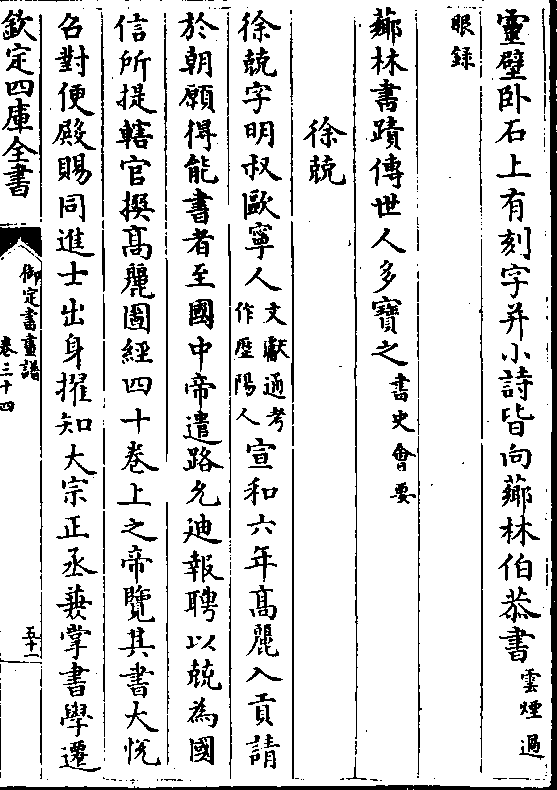 靈壁卧石上有刻字并小詩皆向薌林伯恭書雲煙過
眼録
薌林書蹟傳世人多寶之書史會要
徐兢
徐兢字明叔歐寧人文獻通考作歷陽人宣和六年髙麗入貢請
於朝願得能書者至國中帝遣路允迪報聘以兢為國
信所提轄官撰髙麗圖經四十卷上之帝覽其書大恱
召對便殿賜同進士出身擢知大宗正丞兼掌書學遷
欽定四庫全書
御定書畫譜
卷三十四
五十一